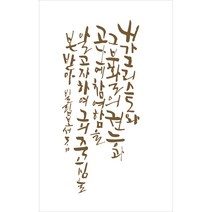 내가 그리스도와
그 부활의 권능과
그 고난에 참여함을
알고자 하여 그의 죽으심을
본받아 빌립보서 3:10